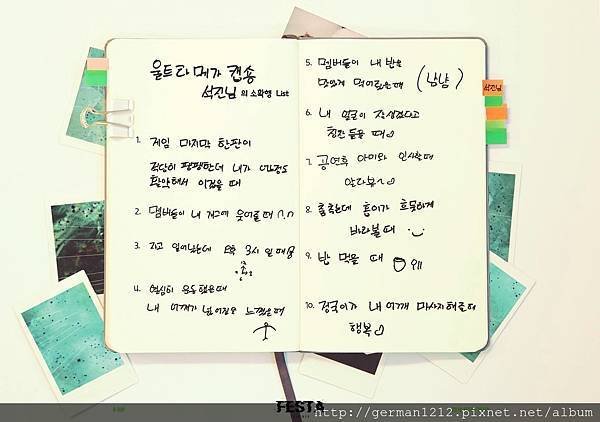 울트라 메가 캡숑
석진님의 소확행 List
1. 게임 마지막 한판이
적당히 팽팽한데 내가
활약해서 이겼을 때
2. 멤버들이 내 개그에 웃어줄 때 ^.^
3. 자고 일어났는데 오후 3시일 때
4. 열심히 운동했을때
내 어깨가 넓어짐을 느꼈을때
5. 멤버들이 내 밥을
맛있게 먹어줬을때 (냠냠)
6. 내 얼굴이 잘생겼다고
칭찬 들을 때
7. 공연후 아미와 인사할때
8. 춤추는데 흥이가 흐뭇하게
바라볼 때
9. 밥 먹을 때
10. 정국이가 내 어깨 마사지해줄때
행복
석진님
FESTA
http://german1212.pixnet.net/album